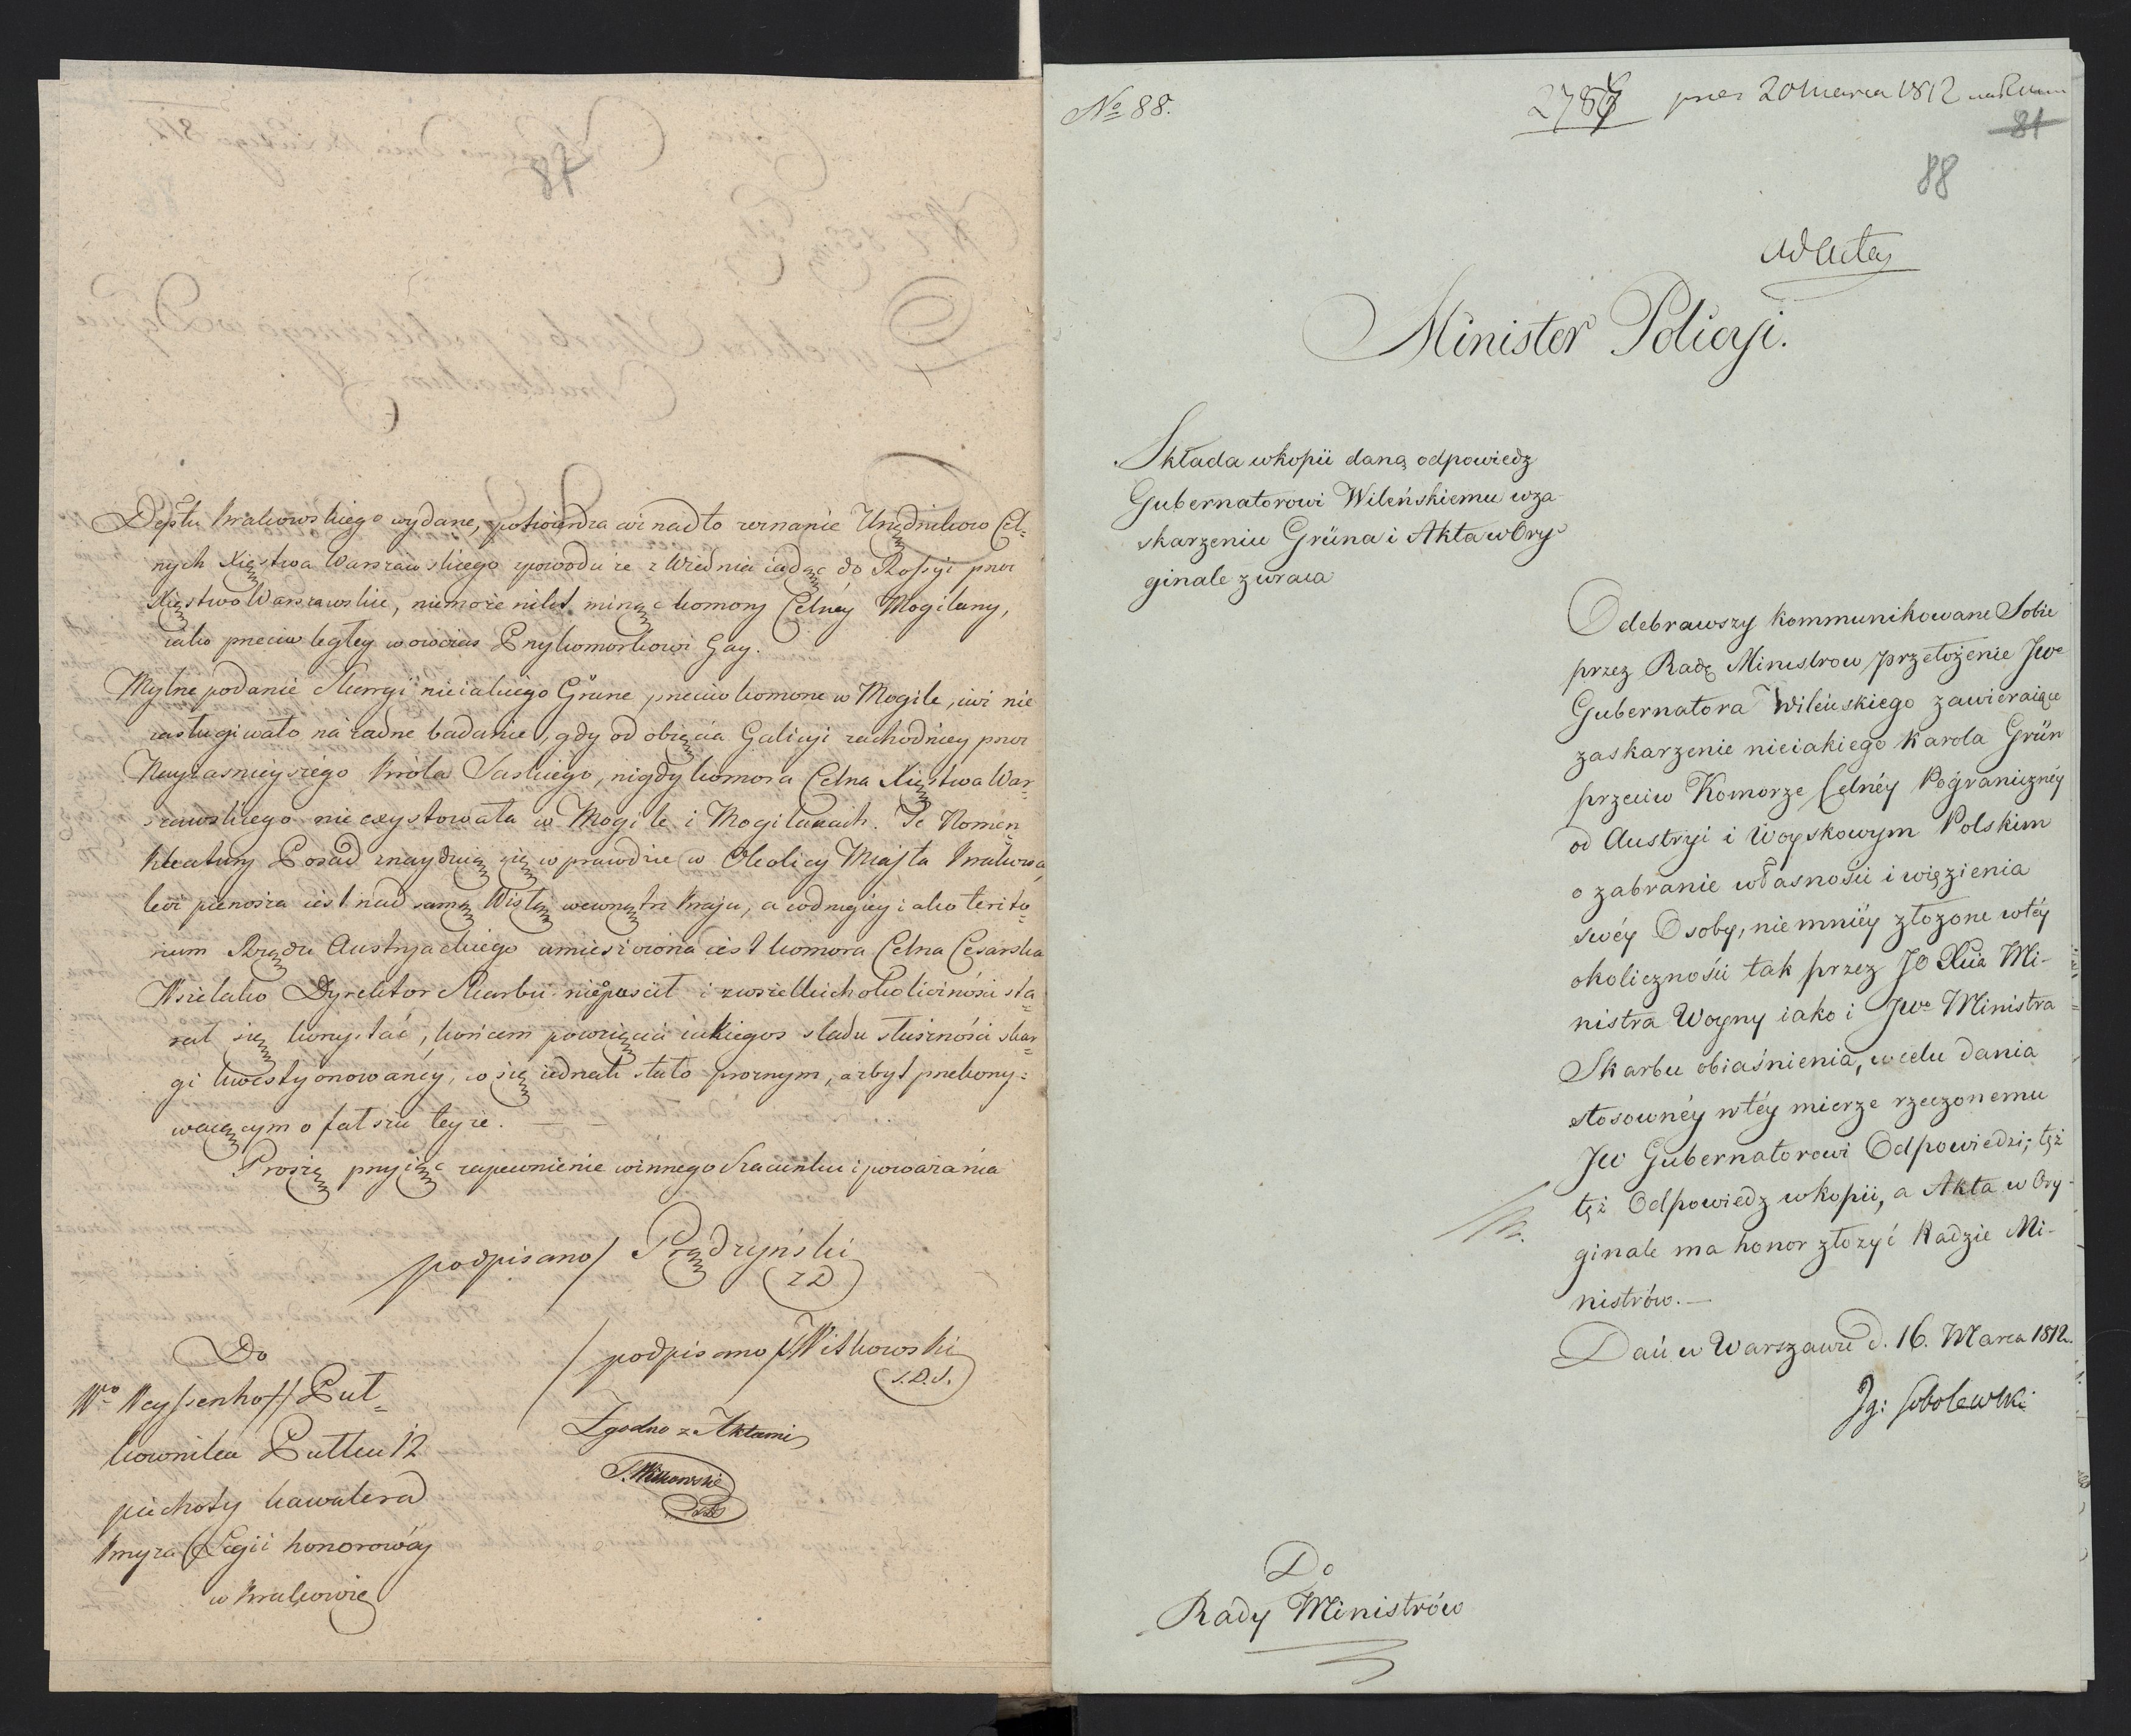 87
Deptu Krakowskiego wydane, potwierdza oni nadto zeznanie Urzędników Cel=
nych Xięstwa Warszawskiego zpowodu że z Wiednia iadąc do Rossyi przez
Xięstwo Warszawskie, niemoże nikt minąć komory Celnéy Mogilany,
iako przeciw ległey wówczas Przykomorkowi Gay.
Mylne podanie Skargi nieiakiego Grüne przeciw komorze w Mogile, iuż nie
zasługiwało na żadne badanie, gdy od obięcia Galicyi zachodniey przez
Nayiasnieyszego Króla Saskiego, nigdy komora Celna Xięstwa War=
szawskiego nie exystowała w Mogile i Mogilanach. Te Nomen
klatury Posad znayduią się w prawdzie w Okolicy Miasta Krakowa,
lecz pierwsza iest nad samą Wisłą wewnątrz kraju, a w drugiéy iako terito=
rium Rządu Austryackiego umieszczona iest komora Celna Cesarska
Wszelako Dyrektor Skarbu niepuscił i zwszelkich okoliczności sta=
rał się korzystać, końcem powzięcia iakiegos sladu słuszności skar=
gi kwestyonowanéy, co się iednak stało prożnym, a zbyt przekony=
waiącym o fałszu teyże.
Proszę przyiąć zapewnienie winnego Szacunku i poważania
podpisano/ Prądzyński
ZD
/podpisano/ J Witkowski
S.D.S.
Do
Wo Weyssenhoff Puł=
kownika Pułku 12
piechoty kawalera
krzyża Legii honorowéy
w Krakowie
Zgodno z Aktami
J. Witkowski
No 88.
2787 prez 20 Marca 1812
81
88
ad acta
Minister Policyi.
Składa wkopii daną odpowiedz
Gubernatorowi Wileńskiemu wza-
skarzeniu Grüna i Akta w Ory-
ginale zwraca
Odebrawszy kommunikowane Sobie
przez Radę Ministrow przełożenie JWo
Gubernatora Wileńskiego zawieraiące
zaskarzenie nieiakiego Karola Grün
przeciw Komorze Celnéy Pograniczney
od Austryi i Woyskowym Polskim
o zabranie własności i więzienia
swéy Osoby, nie mniéy złożone wtéy
okoliczności tak przez JO Xcia Mi-
nistra Woyny iako i JWo Ministra
Skarbu obiaśnienia, wcelu dania
stosownéy wtéy mierze rzeczonemu
JW Gubernatorowi Odpowiedzi; tęż
tęż Odpowiedz wkopii, a Akta w Ory-
ginale ma honor złożyć Radzie Mi-
nistrów.—
Dań w Warszawie d. 16. Marca 1812.
Ig: Sobolewski
Do
Rady Ministrów